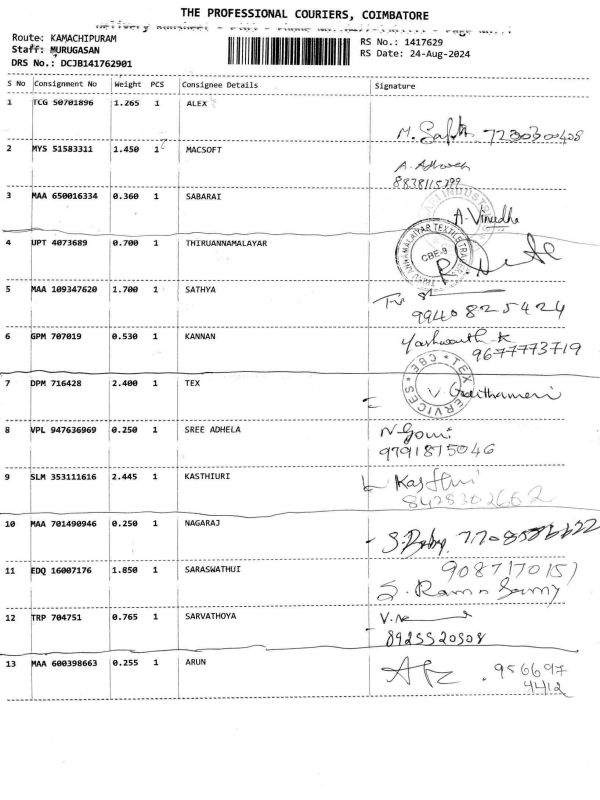 THE PROFESSIONAL COURIERS, COIMBATORE
Route: KAMACHIPURAM
Staff: MURUGASAN
DRS No.: DCJB141762901
RS No.: 1417629
RS Date: 24-Aug-2024
S No Consignment No Weight PCS Consignee Details Signature
1 TCG 50701896 1.265 1 ALEX
2 MYS 51583311 1.450 1 MACSOFT
A. 
8838115299
3 MAA 650016334 0.360 1 SABARAI
A. Vinudha
4 UPT 4073689 0.700 1 THIRUANNAMALAYAR
CBE-9
5 MAA 109347620 1.700 1 SATHYA
99408 25424
6 GPM 707019 0.530 1 KANNAN
Yashwanth K
9677773719
7 DPM 716428 2.400 1 TEX
TEX SERVICES * CBE *
8 VPL 947636969 0.250 1 SREE ADHELA
N. Gowri
9791875046
9 SLM 353111616 2.445 1 KASTHIURI
Kasthuri
8428302662
10 MAA 701490946 0.250 1 NAGARAJ
S. Baby 7708586622
11 EDQ 16007176 1.850 1 SARASWATHUI
9087170151
S. Ramasamy
12 TRP 704751 0.765 1 SARVATHOYA
8925520508
13 MAA 600398663 0.255 1 ARUN
956697
4412